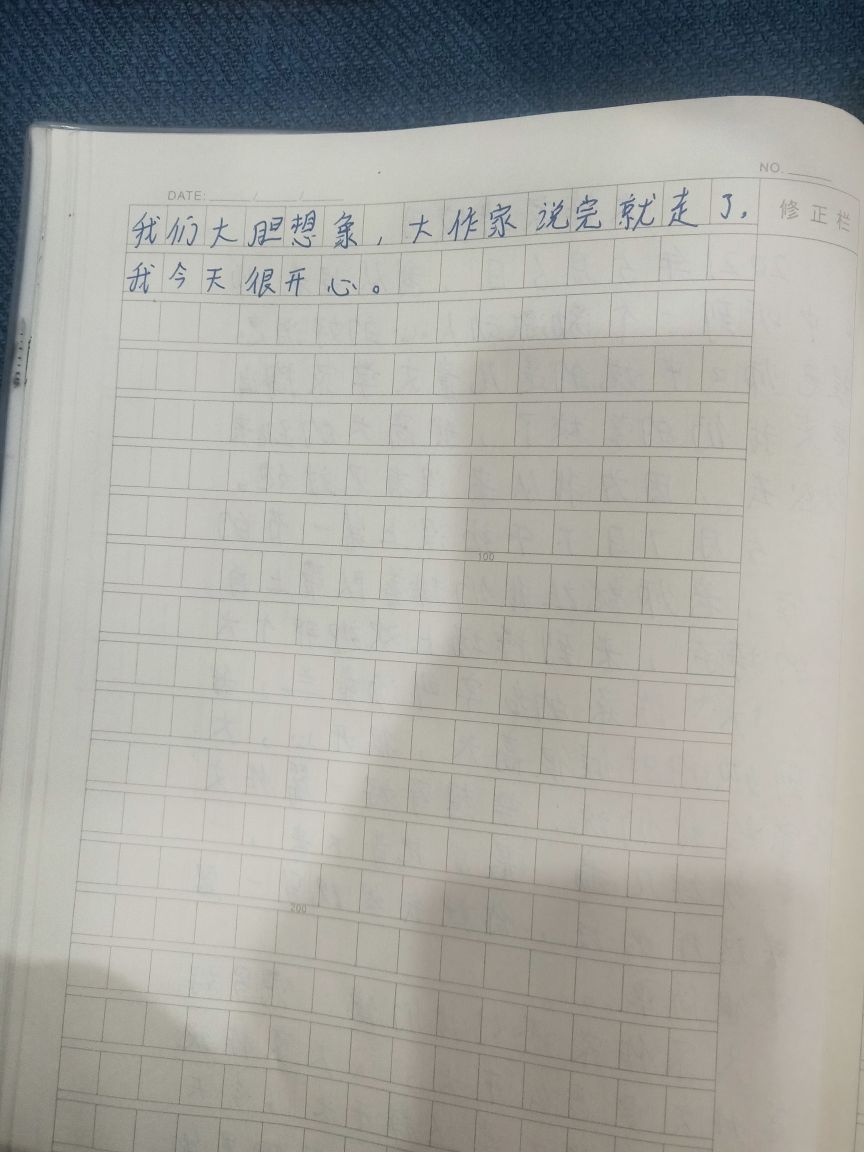 NO.
DATE: / /
我们大胆想象,大作家说完就走了,
修正栏
我今天很开心。
100
200